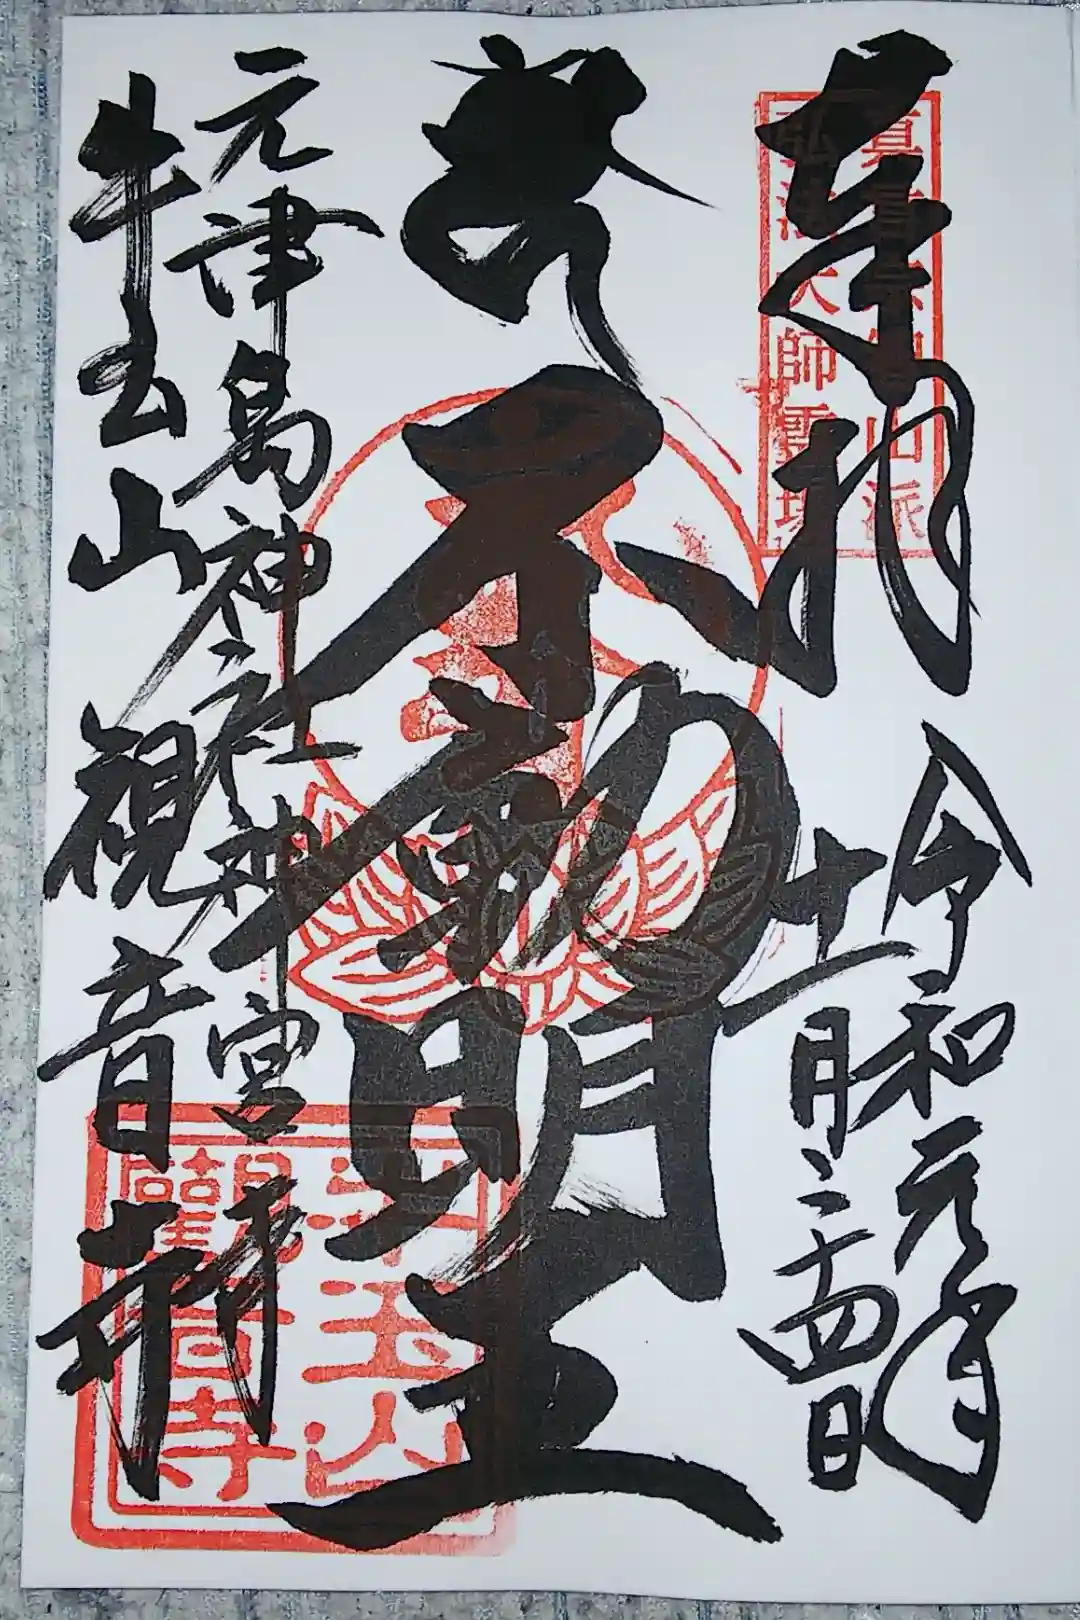 奉拝
令和元年
十一月二十四日
不動明王
元津島神社神宮寺
牛玉山
観音寺
真言宗智山派
弘法大師霊場
牛玉山
観音寺